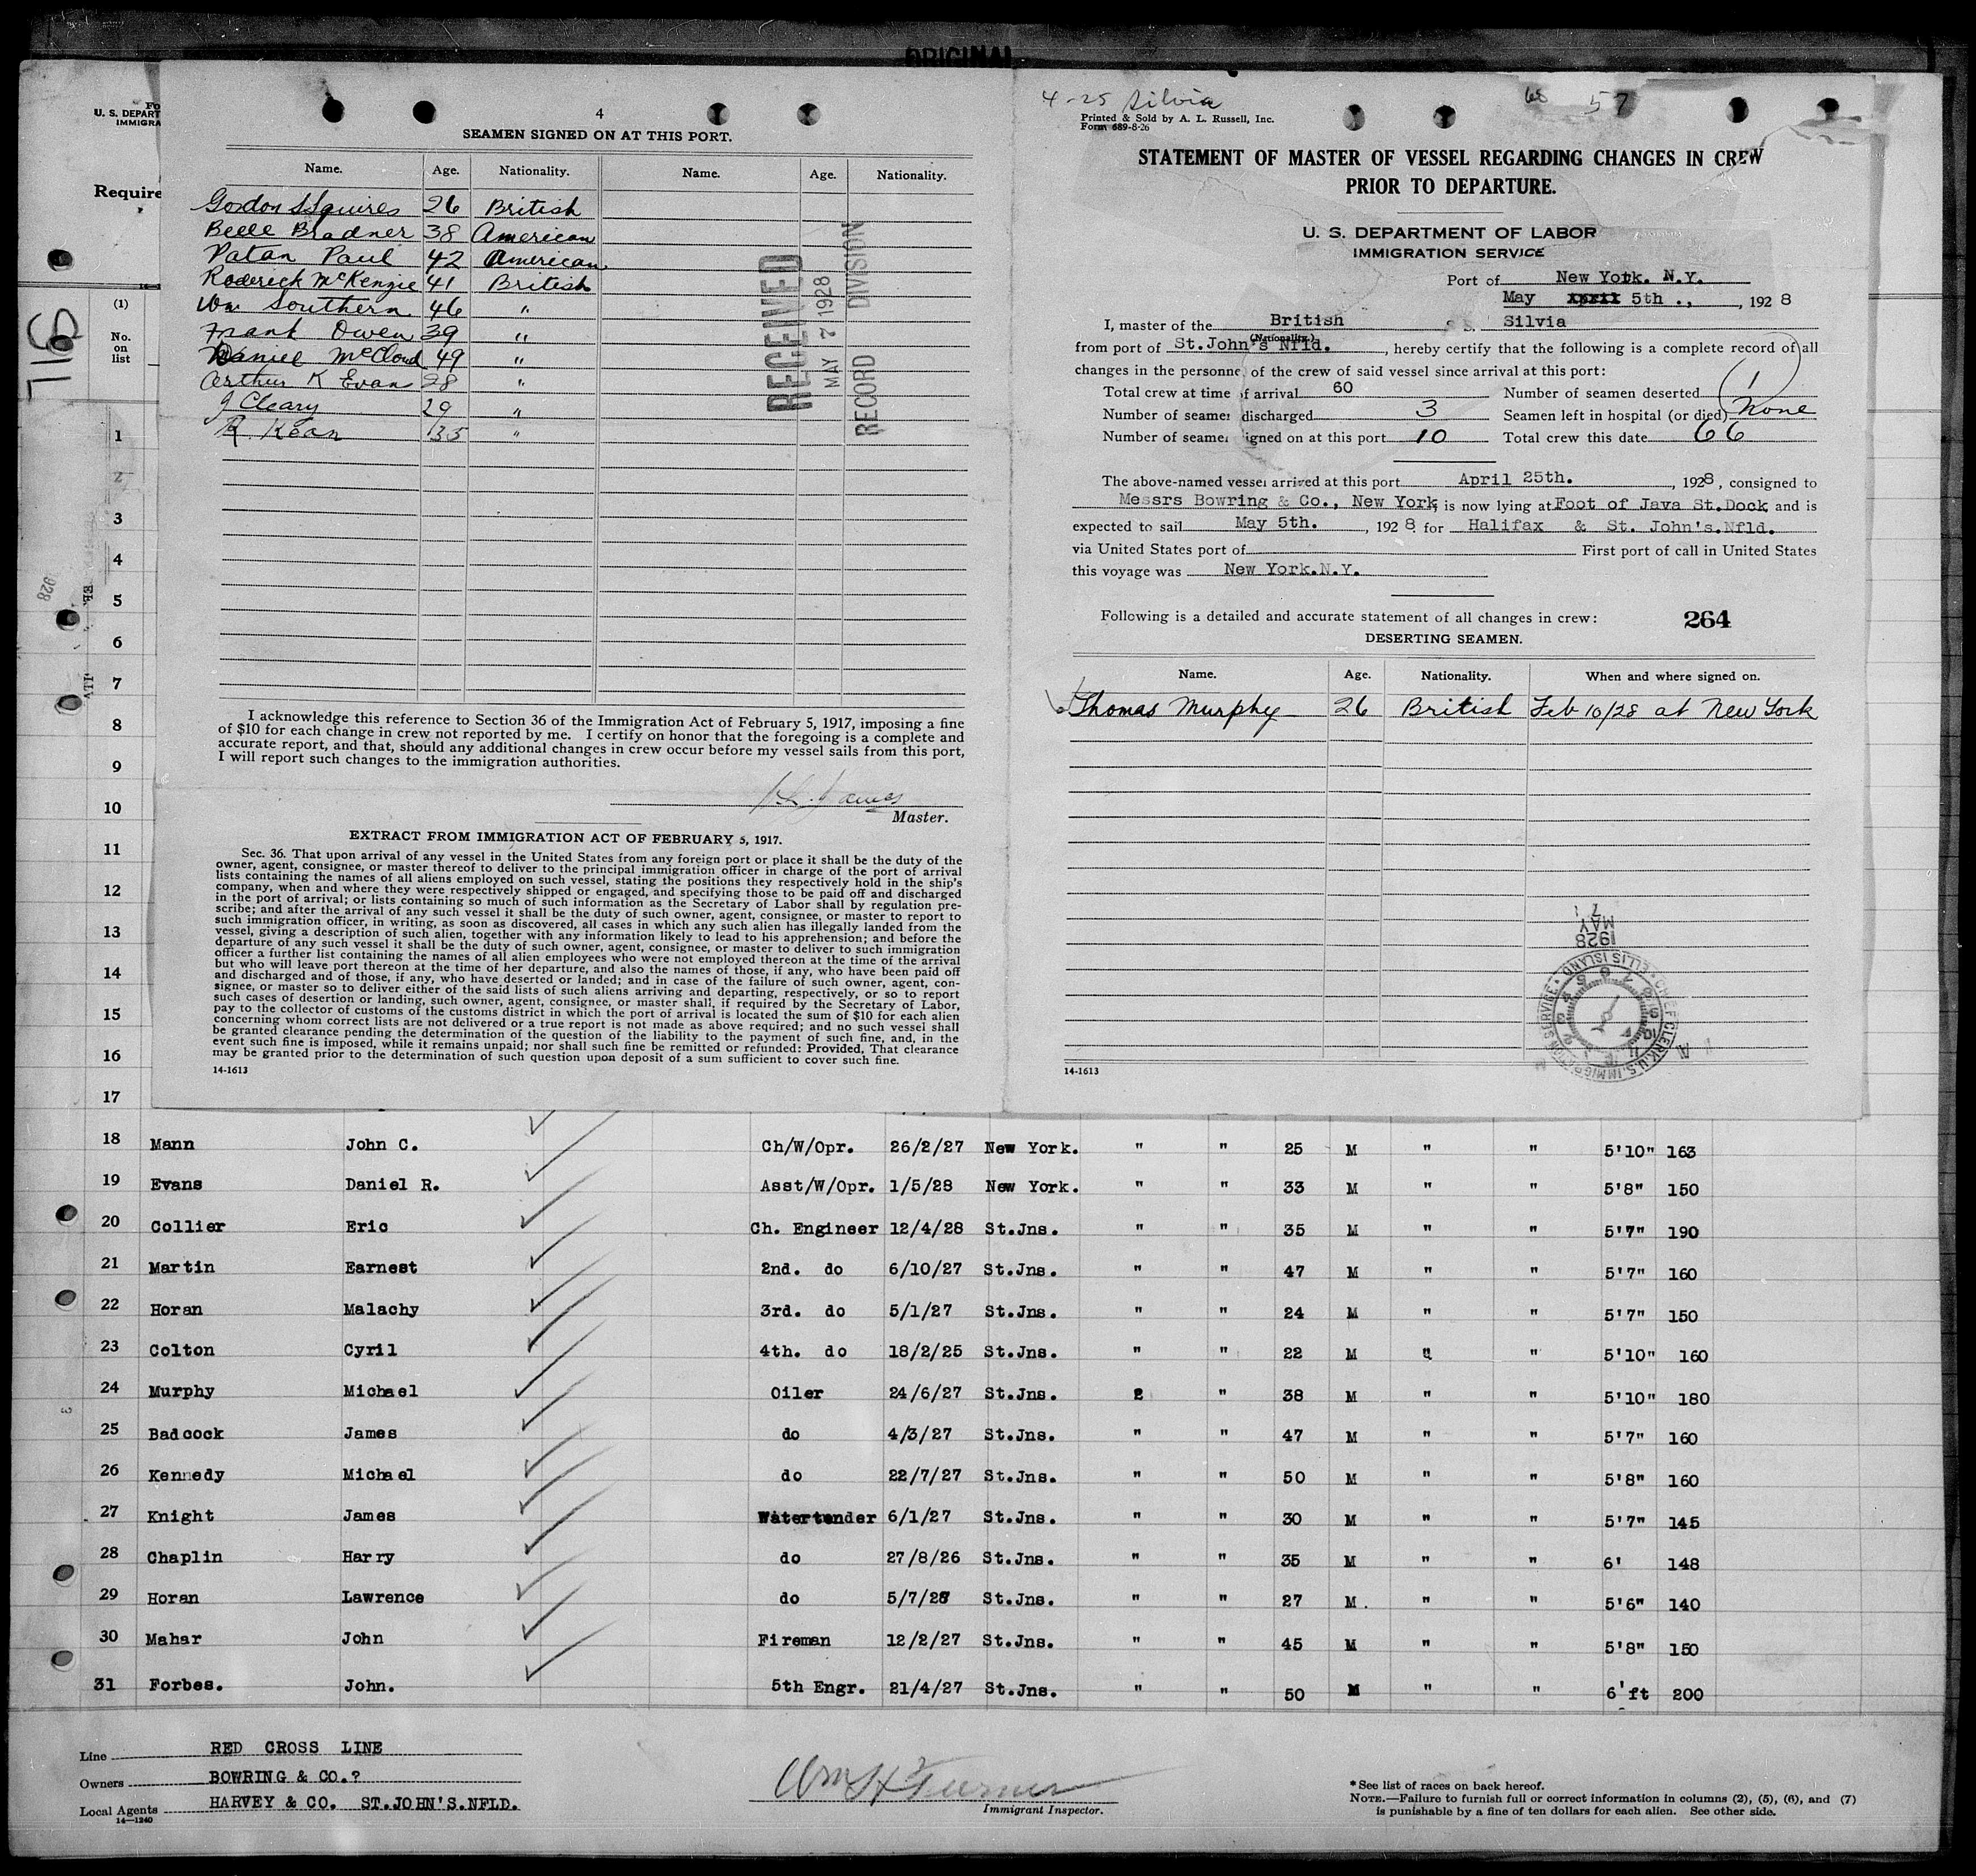 ORIGINAL
U. S. DEPART
IMMIGRA
Require
(1)
No.
on
list
1
2
3
4
5
6
7
8
9
10
11
12
13
14
15
16
17
4
SEAMEN SIGNED ON AT THIS PORT.
Name. Age. Nationality. Name. Age. Nationality.
Gordon S Squires 26 British
Belle Bradner 38 American
Patan Paul 42 American
Roderick McKenzie 41 British
Wm Southern 46 "
Frank Owen 39 "
Daniel McCloud 49 "
Arthur K Evan 28 "
J Cleary 29 "
R. Kean 35 "
RECEIVED
MAY 7 1928
RECORD DIVISION
I acknowledge this reference to Section 36 of the Immigration Act of February 5, 1917, imposing a fine
of $10 for each change in crew not reported by me. I certify on honor that the foregoing is a complete and
accurate report, and that, should any additional changes in crew occur before my vessel sails from this port,
I will report such changes to the immigration authorities.
Master.
EXTRACT FROM IMMIGRATION ACT OF FEBRUARY 5, 1917.
Sec. 36. That upon arrival of any vessel in the United States from any foreign port or place it shall be the duty of the
owner, agent, consignee, or master thereof to deliver to the principal immigration officer in charge of the port of arrival
lists containing the names of all aliens employed on such vessel, stating the positions they respectively hold in the ship's
company, when and where they were respectively shipped or engaged, and specifying those to be paid off and discharged
in the port of arrival; or lists containing so much of such information as the Secretary of Labor shall by regulation pre-
scribe; and after the arrival of any such vessel it shall be the duty of such owner, agent, consignee, or master to report to
such immigration officer, in writing, as soon as discovered, all cases in which any such alien has illegally landed from the
vessel, giving a description of such alien, together with any information likely to lead to his apprehension; and before the
departure of any such vessel it shall be the duty of such owner, agent, consignee, or master to deliver to such immigration
officer a further list containing the names of all alien employees who were not employed thereon at the time of the arrival
but who will leave port thereon at the time of her departure, and also the names of those, if any, who have been paid off
and discharged and of those, if any, who have deserted or landed; and in case of the failure of such owner, agent, con-
signee, or master so to deliver either of the said lists of such aliens arriving and departing, respectively, or so to report
such cases of desertion or landing, such owner, agent, consignee, or master shall, if required by the Secretary of Labor,
pay to the collector of customs of the customs district in which the port of arrival is located the sum of $10 for each alien
concerning whom correct lists are not delivered or a true report is not made as above required; and no such vessel shall
be granted clearance pending the determination of the question of the liability to the payment of such fine, and, in the
event such fine is imposed, while it remains unpaid; nor shall such fine be remitted or refunded: Provided, That clearance
may be granted prior to the determination of such question upon deposit of a sum sufficient to cover such fine.
14-1613
4-25 Silvia
68 57
Printed & Sold by A. L. Russell, Inc.
Form 689-8-26
STATEMENT OF MASTER OF VESSEL REGARDING CHANGES IN CREW
PRIOR TO DEPARTURE.
U. S. DEPARTMENT OF LABOR
IMMIGRATION SERVICE
Port of New York. N.Y.
May April 5th ., , 192 8
I, master of the British S. S. Silvia
(Nationality.)
from port of St.John's Nfld. , hereby certify that the following is a complete record of all
changes in the personnel of the crew of said vessel since arrival at this port:
Total crew at time of arrival 60 Number of seamen deserted 1
Number of seamen discharged 3 Seamen left in hospital (or died) None
Number of seamen signed on at this port 10 Total crew this date 66
The above-named vessel arrived at this port April 25th. , 1928, consigned to
Messrs Bowring & Co., New York, is now lying at Foot of Java St.Dock and is
expected to sail May 5th. , 192 8 for Halifax & St. John's.Nfld.
via United States port of First port of call in United States
this voyage was New York.N.Y.
Following is a detailed and accurate statement of all changes in crew: 264
DESERTING SEAMEN.
Name. Age. Nationality. When and where signed on.
Thomas Murphy 26 British Feb 10/28 at New York
MAY 7
1928
CHIEF CLERK, U.S. IMMIGRATION SERVICE · ELLIS ISLAND
14-1613
18 Mann John C. Ch/W/Opr. 26/2/27 New York. " " 25 M " " 5'10" 163
19 Evans Daniel R. Asst/W/Opr. 1/5/28 New York. " " 33 M " " 5'8" 150
20 Collier Eric Ch. Engineer 12/4/28 St.Jns. " " 35 M " " 5'7" 190
21 Martin Earnest 2nd. do 6/10/27 St.Jns. " " 47 M " " 5'7" 160
22 Horan Malachy 3rd. do 5/1/27 St.Jns. " " 24 M " " 5'7" 150
23 Colton Cyril 4th. do 18/2/25 St.Jns. " " 22 M " " 5'10" 160
24 Murphy Michael Oiler 24/6/27 St.Jns. 2 " 38 M " " 5'10" 180
25 Badcock James do 4/3/27 St.Jns. " " 47 M " " 5'7" 160
26 Kennedy Michael do 22/7/27 St.Jns. " " 50 M " " 5'8" 160
27 Knight James Watertender 6/1/27 St.Jns. " " 30 M " " 5'7" 145
28 Chaplin Harry do 27/8/26 St.Jns. " " 35 M " " 6' 148
29 Horan Lawrence do 5/7/28 St.Jns. " " 27 M . " " 5'6" 140
30 Mahar John Fireman 12/2/27 St.Jns. " " 45 M " " 5'8" 150
31 Forbes. John. 5th Engr. 21/4/27 St.Jns. " " 50 M " " 6'ft 200
Line RED CROSS LINE
Owners BOWRING & CO.?
Local Agents HARVEY & CO. ST.JOHN'S.NFLD.
14—1240
Wm H Turner
Immigrant Inspector.
* See list of races on back hereof.
NOTE.—Failure to furnish full or correct information in columns (2), (5), (6), and (7)
is punishable by a fine of ten dollars for each alien. See other side.